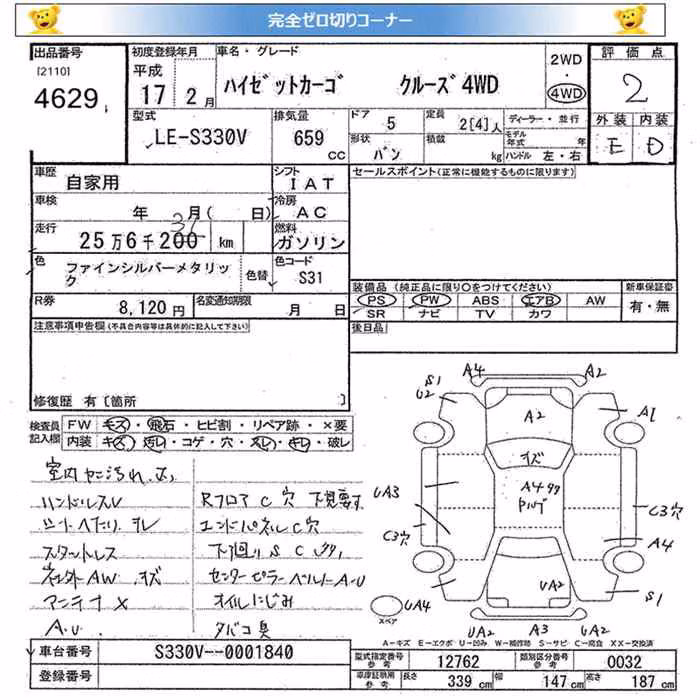 完全ゼロ切りコーナー
出品番号 初度登録年月 車名・グレード 2WD・4WD 評価点
[2110] 4629 平成 17 2月 ハイゼットカーゴ クルーズ 4WD 2
型式 LE-S330V 排気量 659 CC ドア 5 定員 2[4]人 ディーラー・並行 外装 内装
形状 バン 積載 kg モデル年式 年 ハンドル 左・右 E D
車歴 自家用 シフト IAT セールスポイント(正常に機能するものに限ります)
車検 年 月( 日) 冷房 AC
走行 25万6千200 km 燃料 ガソリン
色 ファインシルバーメタリック 色替 色コード S31
装備品(純正品に限り○をつけてください) 新車保証書
PS PW ABS エアB AW 有・無
SR ナビ TV カワ
R券 8,120円 名変通知期限 月 日
後日品
注意事項申告欄(不具合内容等は具体的に記入して下さい)
修復歴 有[箇所 ]
検査員記入欄 FW キズ・飛石・ヒビ割・リペア跡・×要
内装 キズ・汚レ・コゲ・穴・スレ・キレ・破レ
ハンドルスレ Rフロア C穴 下見要す
シートヘたり、スレ エンドパネルC穴
スタットレス 下廻り S C
社外AW キズ センターピラー
アンテナ× オイルにじみ
A・U タバコ臭
A4 A2
S1 U2 A2 A1
キズ
UA3 A4
C3穴 C3穴
A4
UA2 S1
スペア UA4
UA2 A3 UA2
A-キズ E-エクボ U-凹み W-補修跡 S-サビ C-腐食 XX-交換済
車台番号 S330V--0001840 型式指定番号 参考 12762 類別区分番号 参考 0032
登録番号 車庫証明用 参考 長さ 339 cm 幅 147 cm 高さ 187 cm